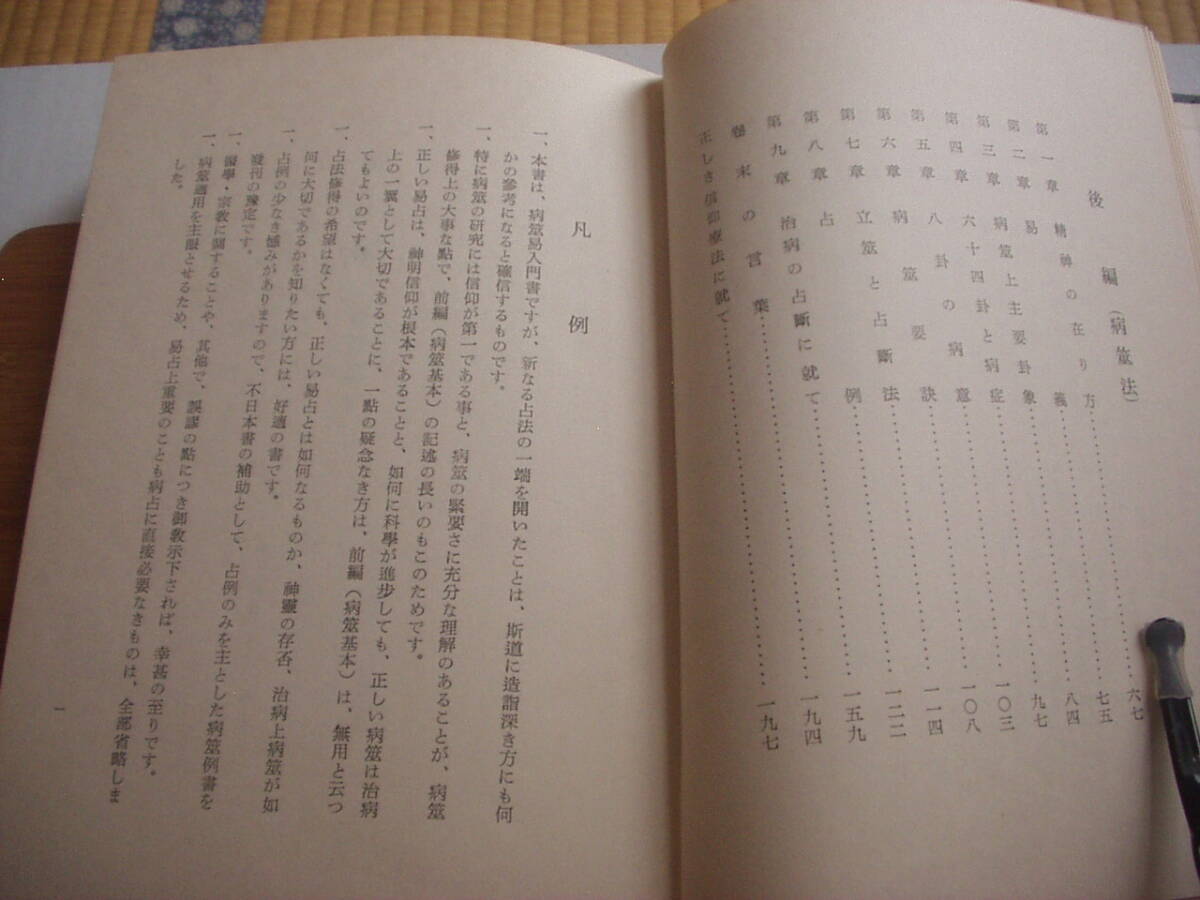 後編(病筮法)
第一章 精神の在り方……六七
第二章 易義……七五
第三章 病筮上主要卦象……八四
第四章 六十四卦と病症……九七
第五章 八卦の病意……一〇三
第六章 病筮要訣……一〇八
第七章 立筮と占斷法……一一四
第八章 占例……一二二
第九章 治病の占斷に就て……一五九
卷末の言葉……一九四
正しき信仰療法に就て……一九七
凡例
一、本書は、病筮易入門書ですが、新なる占法の一端を開いたことは、斯道に造詣深き方にも何
かの參考になると確信するものです。
一、特に病筮の研究には信仰が第一である事と、病筮の緊要さに充分な理解のあることが、病筮
修得上の大事な點で、前編(病筮基本)の記述の長いのもこのためです。
一、正しい易占は、神明信仰が根本であることと、如何に科學が進步しても、正しい病筮は治病
上の一翼として大切であることに、一點の疑念なき方は、前編(病筮基本)は、無用と云つ
てもよいのです。
一、占法修得の希望はなくても、正しい易占とは如何なるものか、神靈の存否、治病上病筮が如
何に大切であるかを知りたい方には、好適の書です。
一、占例の少なき憾みがありますので、不日本書の補助として、占例のみを主とした病筮例書を
發刊の豫定です。
一、醫學・宗教に關することや、其他で、誤謬の點につき御教示下されば、幸甚の至りです。
一、病筮適用を主眼とせるため、易占上重要のことも病占に直接必要なきものは、全部省略しま
した。
一